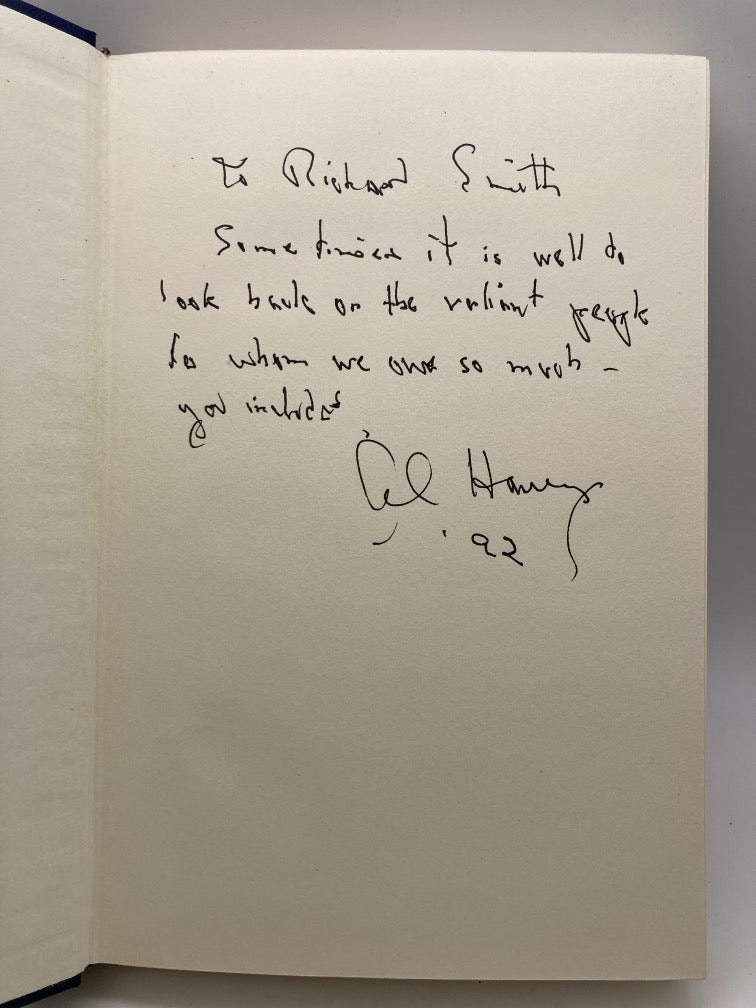 To Richard Smith
Sometimes it is well to
look back on the valiant people
to whom we owe so much –
you included
Al
'92